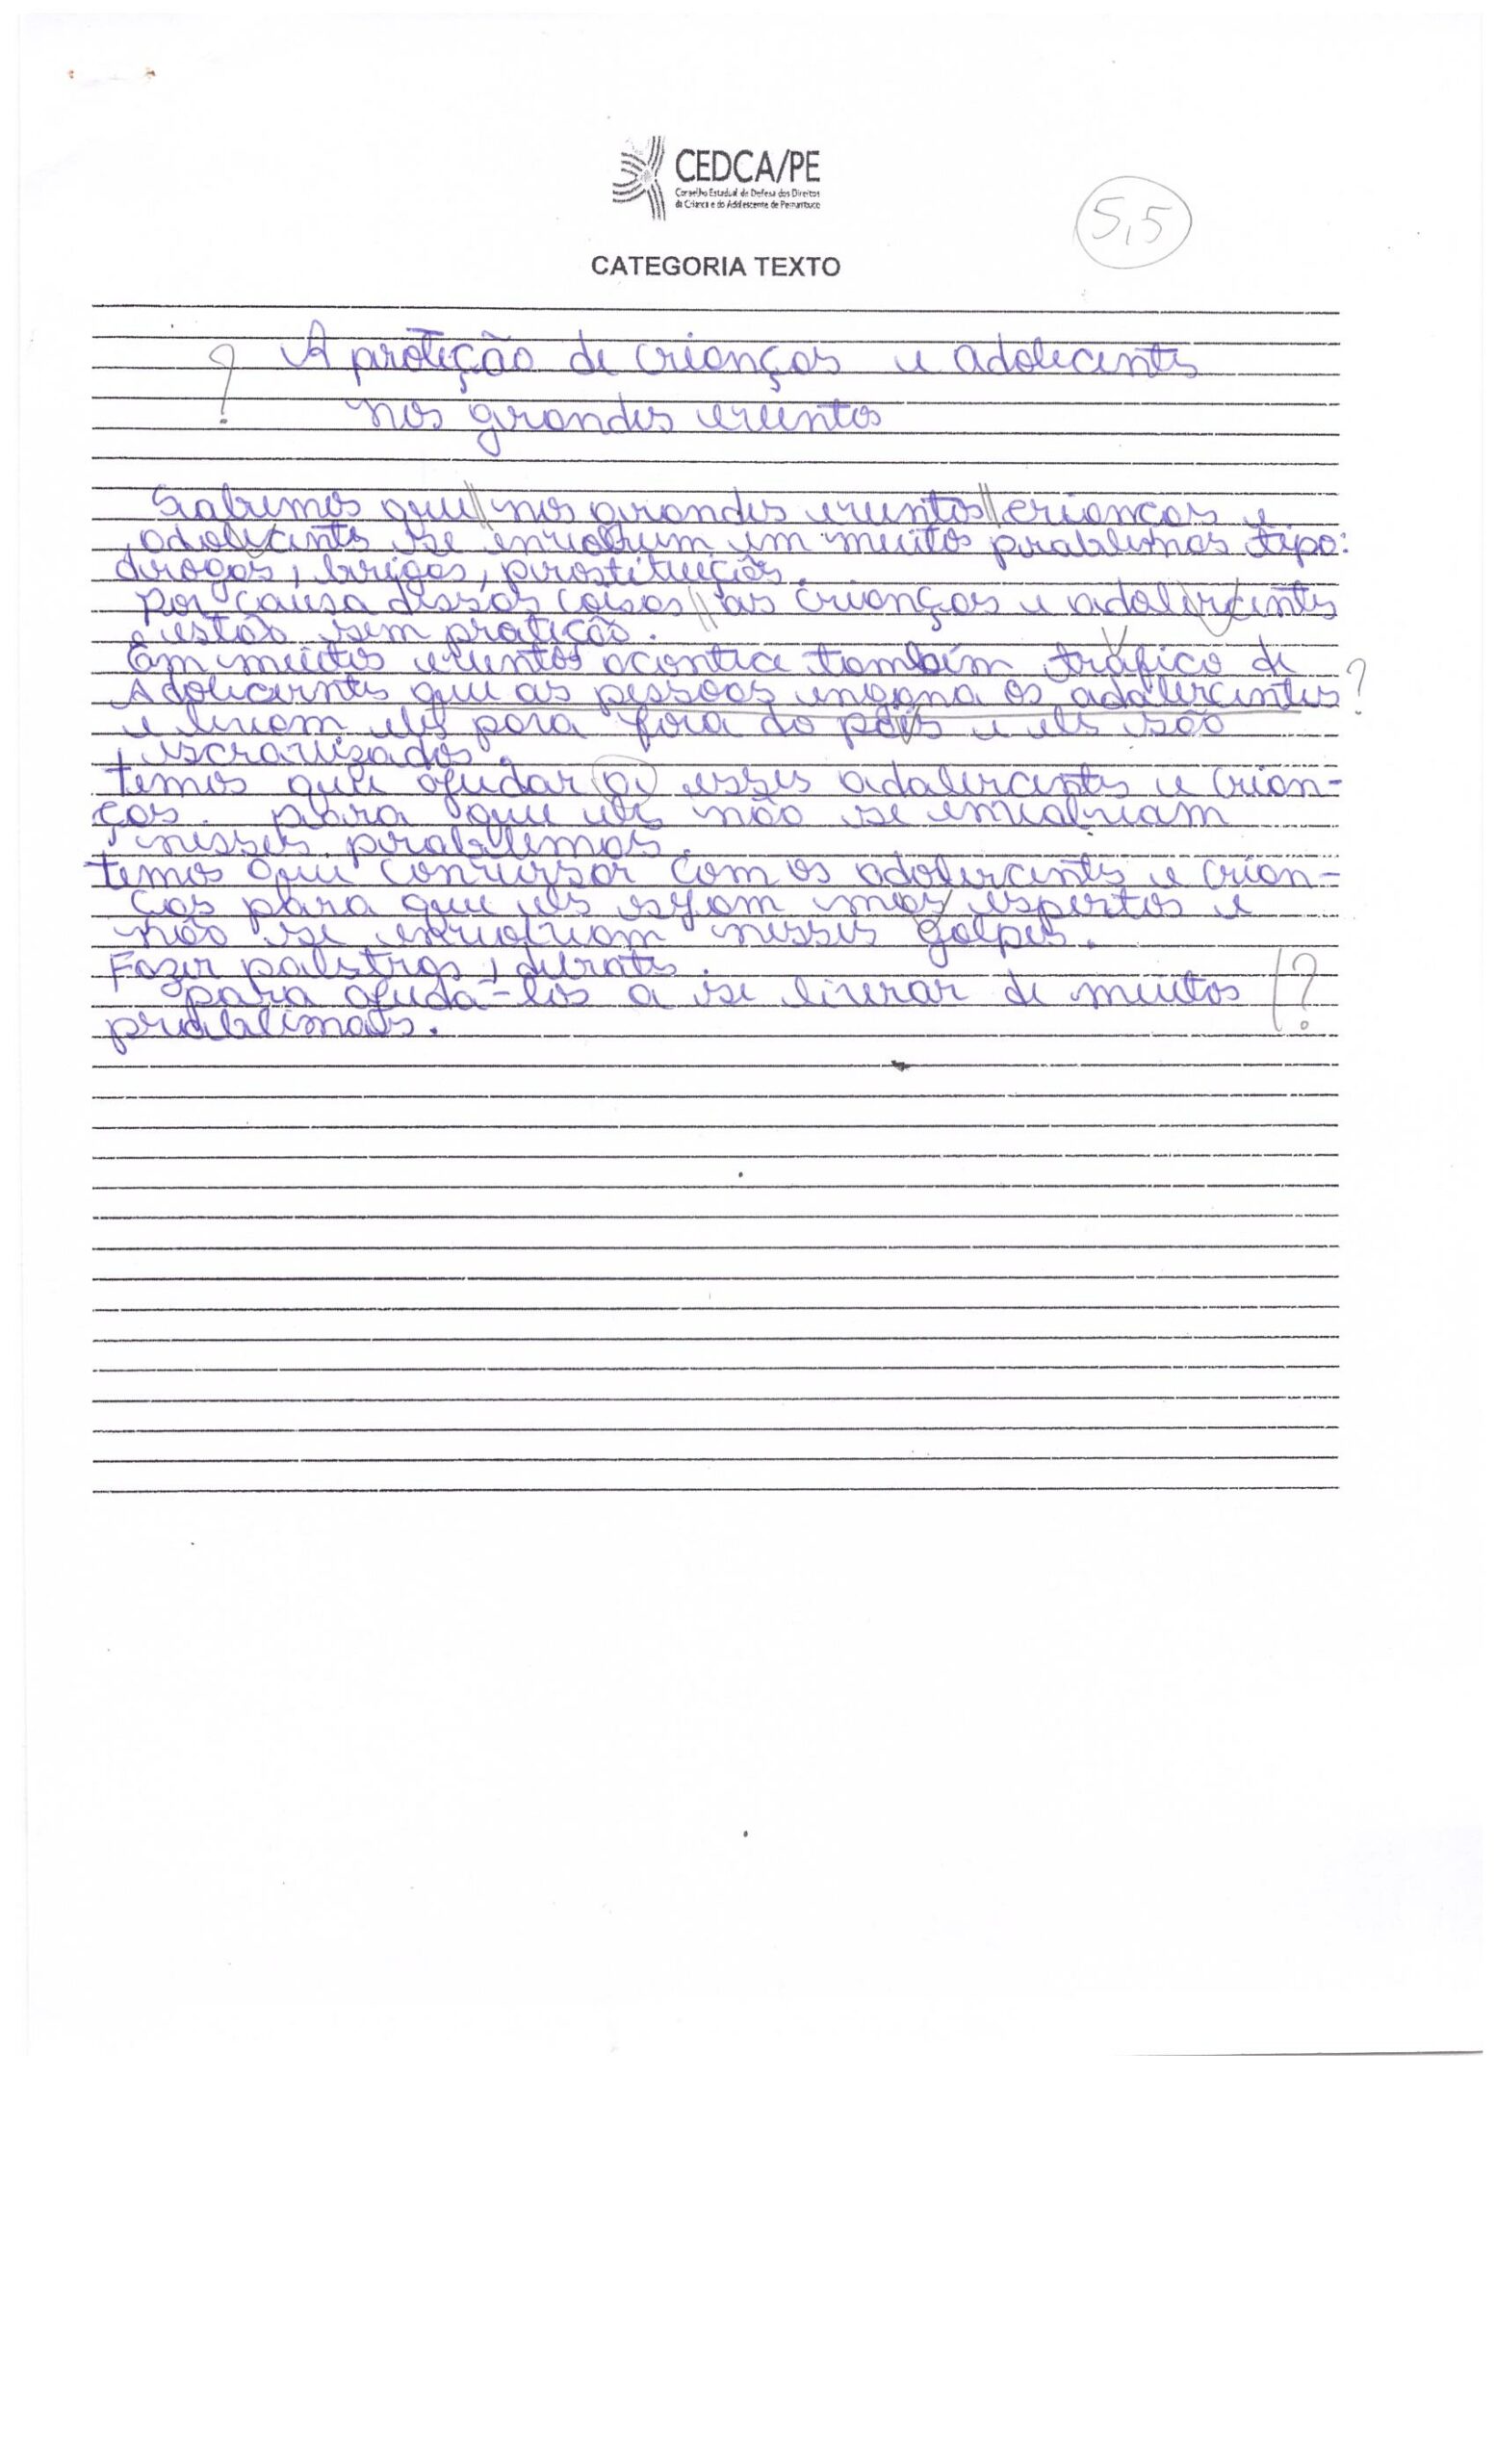 CEDCA/PE
Conselho Estadual de Defesa dos Direitos
da Criança e do Adolescente de Pernambuco
5,5
CATEGORIA TEXTO
? A proteção de crianças e adolecents
nos grandes eventos
Sabemos que // nos grandes eventos // crianças e
adolecents se envolvem em muitos problemas tipo:
drogas, brigas, prostituições.
Por causa dessas coisas // as crianças e adolercentes
estão sem proteção.
Em muitos eventos acontece também tráfico de
Adolecerntes que as pessoas engana os adolercentes ?
e levam eles para fora do país e eles são
escravizados.
temos que ajudar a esses adolercentes e crian-
ças. para que eles não se envolviam
nesses problemas.
temos que conversar com os adolercentes e crian-
ças para que eles esejam mas espertos e
não se envolviam nesses golpes.
Fazer palestras, debates.
para ajuda-los a se liverar de muitos ?
problemas.